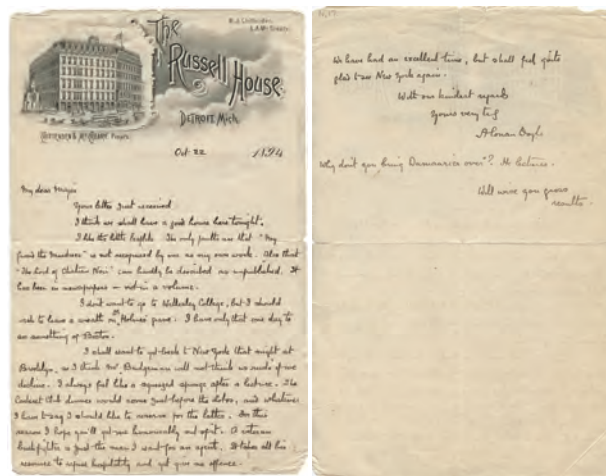 The
Russell House.
Detroit, Mich.
Oct 22 1894
My dear Major
Your letter just received.
I think we shall have a good house here tonight.
I like the little Pamphlet. The only faults are that "My
friend the Murderer" is not recognised by me as my own work. Also that
"The Lord of Chateau Noir" can hardly be described as unpublished. It
has been in newspapers – not in a volume.
I don't want to go to Wellesley College, but I should
wish to leave a wreath on Holmes' grave. I have only that one day to
see something of Boston.
I shall want to get back to New York that night at
Brooklyn, so I think Mr. Bridgman will not think us rude if we
decline. I always feel like a squeezed sponge after a lecture. The
dinner would come just before the lotos, and whatever
I have to say I should like to reserve for the latter. For this
reason I hope you'll get me honourably out of it. A veteran
is just the man I want for an agent. It takes all his
resource to refuse hospitality and yet give no offence.
We have had an excellent time, but shall feel quite
glad to see New York again.
With our kindest regards
Yours very truly
A Conan Doyle
Why don't you bring over? He lectures.
Will wire you gross
results.